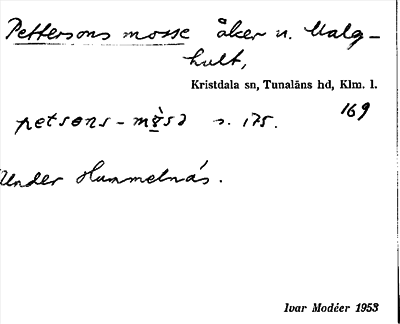 Pettersons mosse åker n. Malg-
hult,
Kristdala sn, Tunaläns hd, Klm. l.
169
petsons-mòsa s. 175.
Under Hummelnäs.
Ivar Modéer 1953